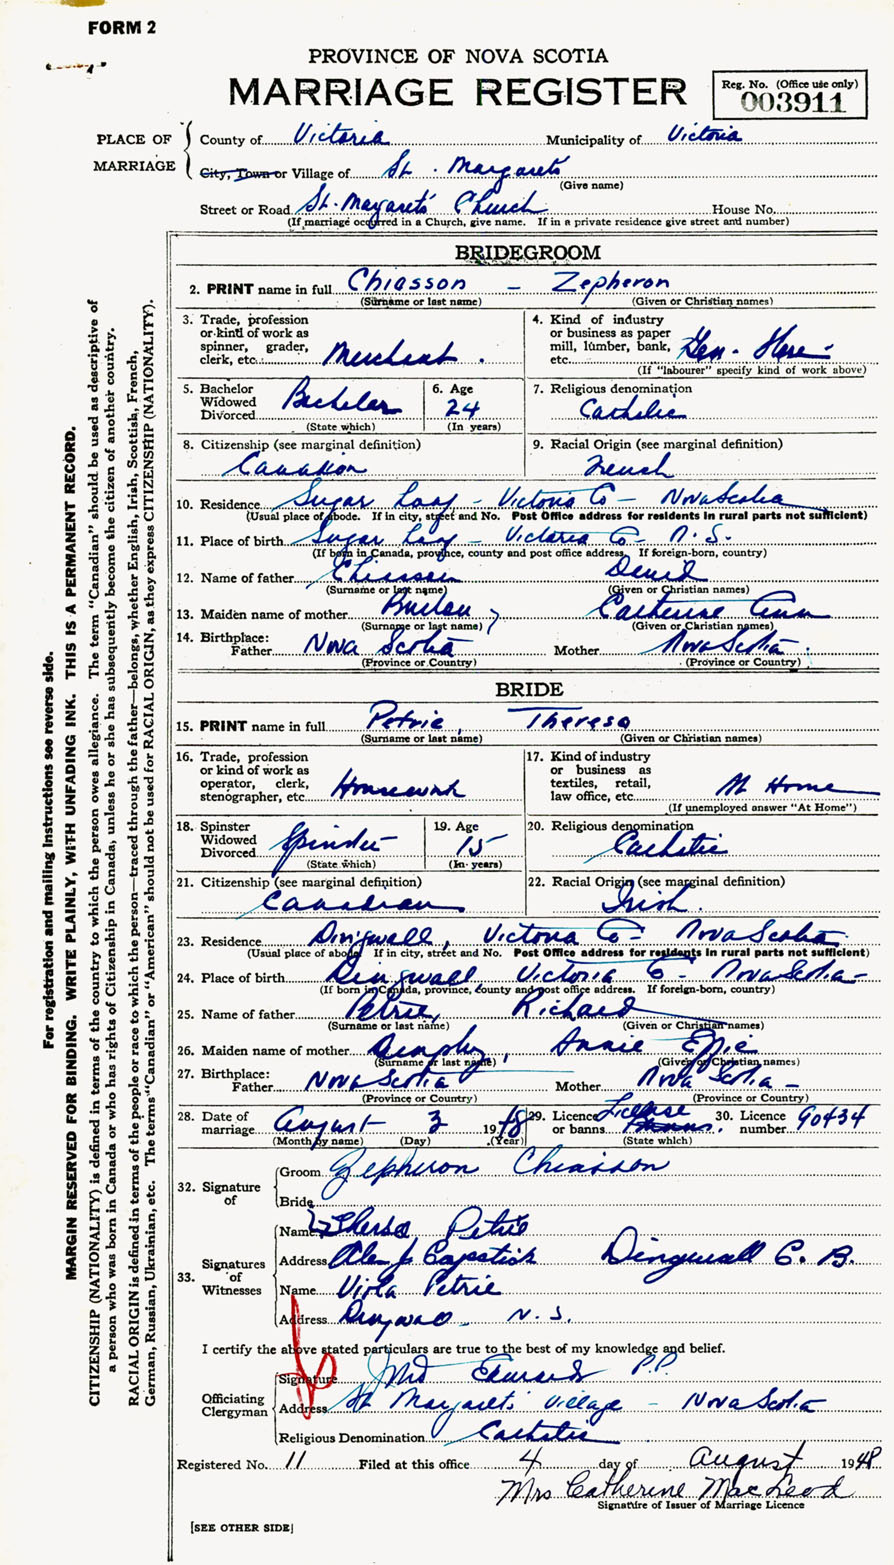 FORM 2
PROVINCE OF NOVA SCOTIA
MARRIAGE REGISTER
Reg. No. (Office use only)
003911
PLACE OF MARRIAGE
County of Victoria Municipality of Victoria
City, Town or Village of St. Margarets
(Give name)
Street or Road St. Margarets Church House No.
(If marriage occurred in a Church, give name. If in a private residence give street and number)
BRIDEGROOM
2. PRINT name in full Chiasson - Zepheron
(Surname or last name) (Given or Christian names)
3. Trade, profession or kind of work as spinner, grader, clerk, etc. Merchant.
4. Kind of industry or business as paper mill, lumber, bank, etc. Gen. Store
(If "labourer" specify kind of work above)
5. Bachelor Widowed Divorced Bachelor
(State which)
6. Age 24
(In years)
7. Religious denomination
Catholic
8. Citizenship (see marginal definition)
Canadian
9. Racial Origin (see marginal definition)
French
10. Residence Sugar Loaf - Victoria Co - Nova Scotia
(Usual place of abode. If in city, street and No. Post Office address for residents in rural parts not sufficient)
11. Place of birth Sugar Loaf - Victoria Co - N.S.
(If born in Canada, province, county and post office address. If foreign-born, country)
12. Name of father Chiasson David
(Surname or last name) (Given or Christian names)
13. Maiden name of mother Catherine Ann
(Surname or last name) (Given or Christian names)
14. Birthplace:
Father Nova Scotia Mother Nova Scotia.
(Province or Country) (Province or Country)
BRIDE
15. PRINT name in full Petrie, Theresa
(Surname or last name) (Given or Christian names)
16. Trade, profession or kind of work as operator, clerk, stenographer, etc. Housework
17. Kind of industry or business as textiles, retail, law office, etc. At Home
(If unemployed answer "At Home")
18. Spinster Widowed Divorced Spinster
(State which)
19. Age 15
(In years)
20. Religious denomination
Catholic
21. Citizenship (see marginal definition)
Canadian
22. Racial Origin (see marginal definition)
Irish.
23. Residence Dingwall, Victoria Co - Nova Scotia
(Usual place of abode. If in city, street and No. Post Office address for residents in rural parts not sufficient)
24. Place of birth Dingwall, Victoria Co - Nova Scotia -
(If born in Canada, province, county and post office address. If foreign-born, country)
25. Name of father Petrie, Richard
(Surname or last name) (Given or Christian names)
26. Maiden name of mother Annie Effie
(Surname or last name) (Given or Christian names)
27. Birthplace:
Father Nova Scotia Mother Nova Scotia -
(Province or Country) (Province or Country)
28. Date of marriage August 3 1948
(Month by name) (Day) (Year)
29. Licence or banns License Banns.
(State which)
30. Licence number 90434
32. Signature of
Groom Zepheron Chiasson
Bride
33. Signatures of Witnesses
Name Theresa Petrie
Address Alex J Capstick Dingwall C. B.
Name Viola Petrie
Address Dingwall - N.S.
I certify the above stated particulars are true to the best of my knowledge and belief.
Officiating Clergyman
Signature Edwards P.P.
Address St Margarets Village - Nova Scotia
Religious Denomination Catholic
Registered No. 11 Filed at this office 4 day of August 1948
Mrs Catherine MacLeod
Signature of Issuer of Marriage Licence
[SEE OTHER SIDE]
For registration and mailing instructions see reverse side.
MARGIN RESERVED FOR BINDING. WRITE PLAINLY, WITH UNFADING INK. THIS IS A PERMANENT RECORD.
CITIZENSHIP (NATIONALITY) is defined in terms of the country to which the person owes allegiance. The term "Canadian" should be used as descriptive of
a person who was born in Canada or who has rights of Citizenship in Canada, unless he or she has subsequently become the citizen of another country.
RACIAL ORIGIN is defined in terms of the people or race to which the person—traced through the father—belongs, whether English, Irish, Scottish, French,
German, Russian, Ukrainian, etc. The terms "Canadian" or "American" should not be used for RACIAL ORIGIN, as they express CITIZENSHIP (NATIONALITY).